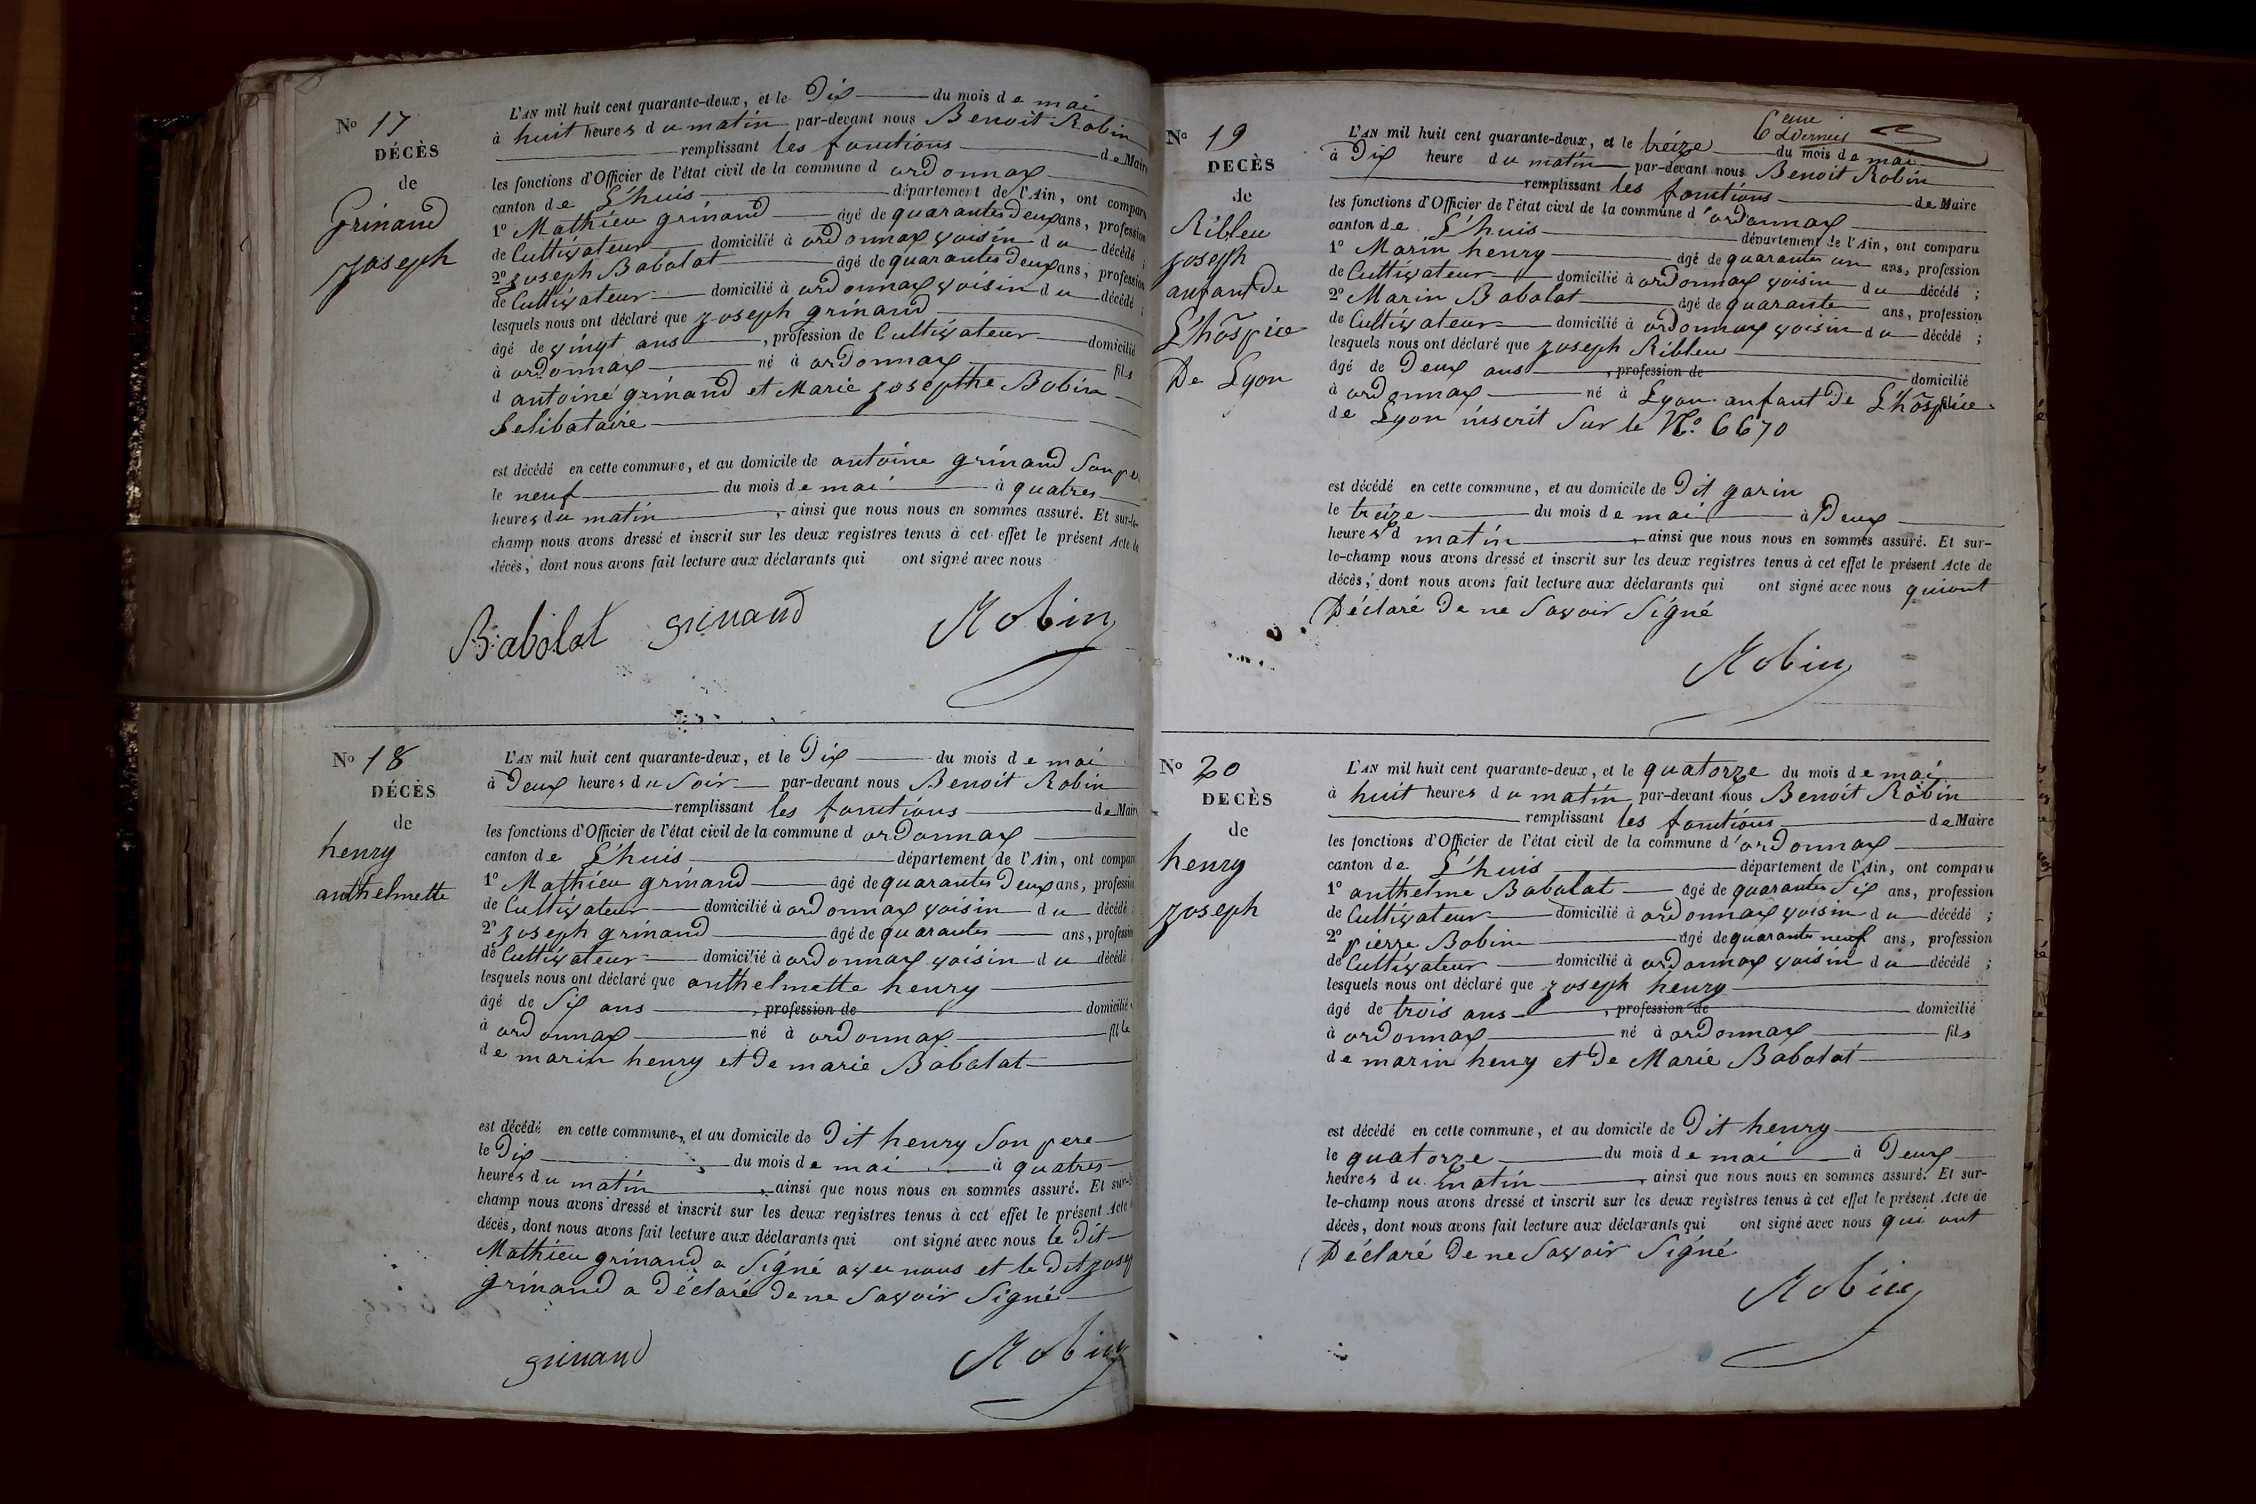 No 17
DÉCÈS
de
Grinand
joseph
L'AN mil huit cent quarante-deux, et le Dix du mois de mai
à huit heures du matin par-devant nous Benoit Robin
remplissant les fonctions de Maire
les fonctions d'Officier de l'état civil de la commune d ordonnax
canton de L'huis département de l'Ain, ont compar
1o Mathieu grinand âgé de quarantes deux ans, profession
de Cultivateur domicilié à ordonnax voisin du décédé ;
2o joseph Babolat âgé de quarantes deux ans, profession
de Cultivateur domicilié à ordonnax voisin du décédé ;
lesquels nous ont déclaré que joseph grinand
âgé de vingt ans, profession de Cultivateur domicilié
à ordonnax né à ordonnax fils
d antoine grinand et Marie josepthe Bobin
Selibataire
est décédé en cette commune, et au domicile de antoine grinand Son pe
le neuf du mois de mai à quatres
heures du matin, ainsi que nous nous en sommes assuré. Et sur-le-
champ nous avons dressé et inscrit sur les deux registres tenus à cet effet le présent Acte de
décès, dont nous avons fait lecture aux déclarants qui ont signé avec nous
Babolat grinand Robin
No 18
DÉCÈS
de
henry
anthelmette
L'AN mil huit cent quarante-deux, et le Dix du mois de mai
à Deux heures du Soir par-devant nous Benoit Robin
remplissant les fonctions de Mair
les fonctions d'Officier de l'état civil de la commune d ordonnax
canton de L'huis département de l'Ain, ont compar
1o Mathieu grinand âgé de quarantes Deux ans, profession
de Cultivateur domicilié à ordonnax voisin du décédé ;
2o joseph grinand âgé de quarantes ans, profession
de Cultivateur domicilié à ordonnax voisin du décédé
lesquels nous ont déclaré que anthelmette henry
âgé de Six ans, profession de domicilié
à ordonnax né à ordonnax fille
de marin henry et de marie Babolat
est décédé en cette commune, et au domicile de Dit henry Son pere
le Dix du mois de mai à quatres
heures du matin, ainsi que nous nous en sommes assuré. Et sur-l
champ nous avons dressé et inscrit sur les deux registres tenus à cet effet le présent Acte
décès, dont nous avons fait lecture aux déclarants qui ont signé avec nous le Dit
Mathieu grinand a Signé avec nous et le Dit josep
grinand a Déclaré De ne Savoir Signé
grinand Robin
No 19
DECÈS
de
Ribleu
joseph
anfant de
L'hôspice
De Lyon
6eme
L'AN mil huit cent quarante-deux, et le treize du mois de mai
à Dix heure du matin par-devant nous Benoit Robin
remplissant les fonctions de Maire
les fonctions d'Officier de l'état civil de la commune d'ordonnax
canton de L'huis département de l'Ain, ont comparu
1o Marin henry âgé de quarantes un ans, profession
de Cultivateur domicilié à ordonnax voisin du décédé ;
2o Marin Babolat âgé de quarante ans, profession
de Cultivateur domicilié à ordonnax voisin du décédé ;
lesquels nous ont déclaré que joseph Ribleu
âgé de Deux ans, profession de domicilié
à ordonnax né à Lyon anfant De L'hôspice
de Lyon inscrit Sur le No. 6670
est décédé en cette commune, et au domicile de Dit garin
le treize du mois de mai à Deux
heures d matin, ainsi que nous nous en sommes assuré. Et sur-
le-champ nous avons dressé et inscrit sur les deux registres tenus à cet effet le présent Acte de
décès, dont nous avons fait lecture aux déclarants qui ont signé avec nous qui ont
Déclaré De ne Savoir Signé
Robin
No 20
DECÈS
de
henry
joseph
L'AN mil huit cent quarante-deux, et le quatorze du mois de mai
à huit heures du matin par-devant nous Benoit Robin
remplissant les fonctions de Maire
les fonctions d'Officier de l'état civil de la commune d'ordonnax
canton de L'huis département de l'Ain, ont comparu
1o anthelme Babolat âgé de quarantes Six ans, profession
de Cultivateur domicilié à ordonnax voisin du décédé ;
2o pierre Bobin âgé de quarantes neuf ans, profession
de Cultivateur domicilié à ordonnax voisin du décédé ;
lesquels nous ont déclaré que joseph henry
âgé de trois ans, profession de domicilié
à ordonnax né à ordonnax fils
de marin henry et De Marie Babolat
est décédé en cette commune, et au domicile de Dit henry
le quatorze du mois de mai à Deux
heures du matin, ainsi que nous nous en sommes assuré. Et sur-
le-champ nous avons dressé et inscrit sur les deux registres tenus à cet effet le présent Acte de
décès, dont nous avons fait lecture aux déclarants qui ont signé avec nous qui ont
Déclaré De ne Savoir Signé
Robin